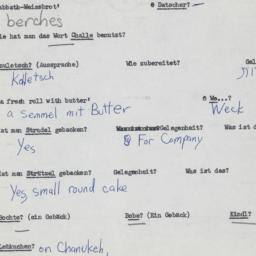 abbath-Weissbrot'
@ Datscher?
berches
ie hat man das Wort Challe benutzt?
zuletsch? (Aussprache)
Wie zubereitet?
Kolletsch
a fresh roll with butter'
@ We...?
a semmel mit Butter
Weck
at man Strudel gebacken?
Gelegenheit?
Was ist d
Yes
For Company
at man Strützel gebacken?
Gelegenheit?
Was ist das?
Yes, small round cake
Bochte? (ein Gebäck)
Bobe? (Ein Gebäck)
Kindl?
Lebkuchen?
on Chanukeh,